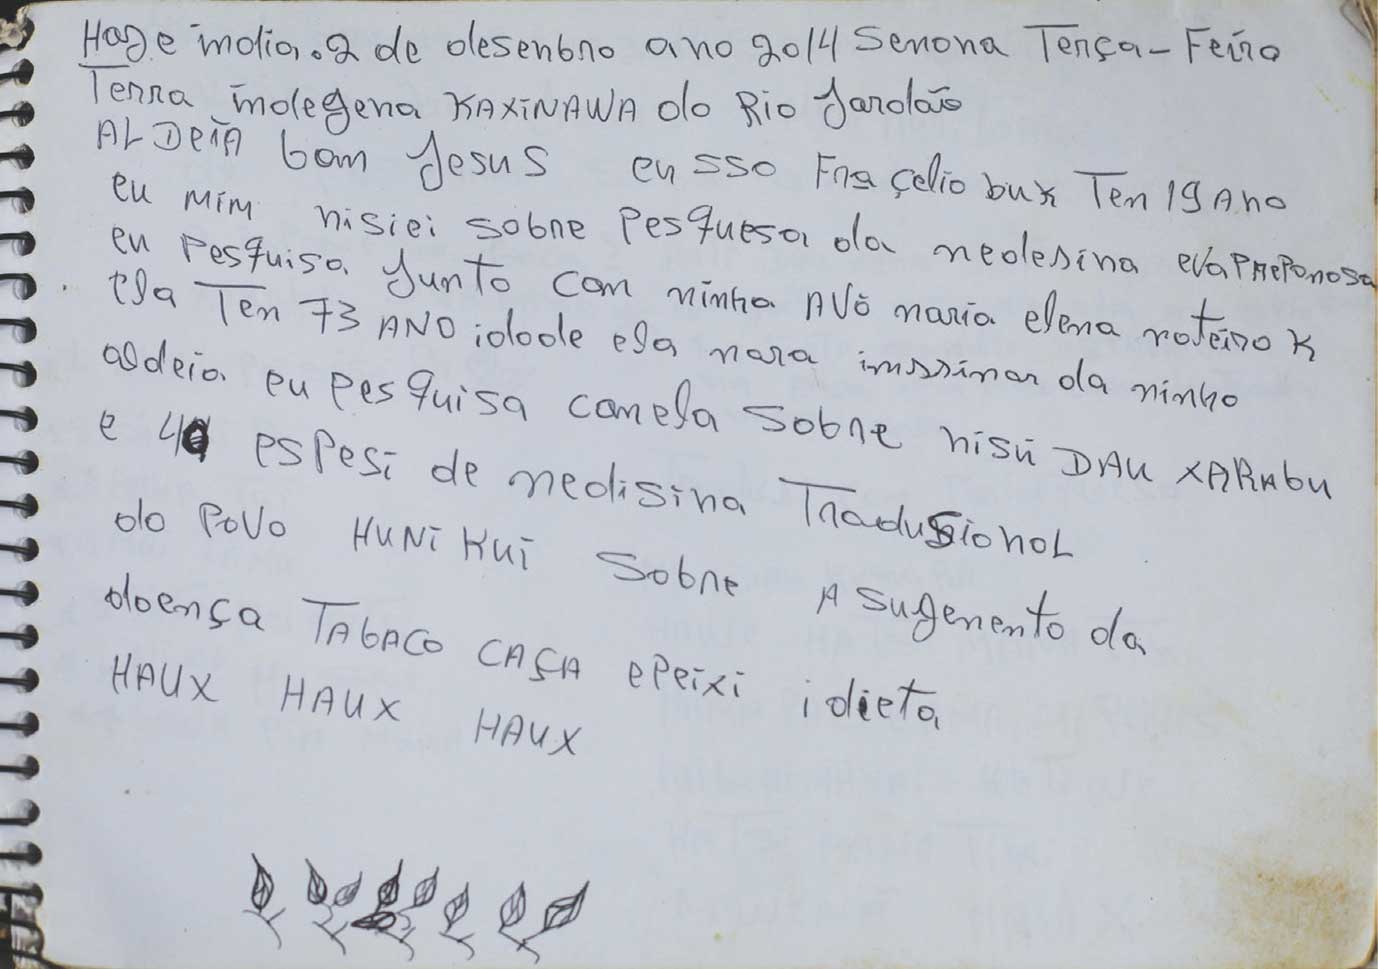 Hoge india. 2 de desenbro ano 2014 Semona Terça-Feiro
Terra indegena KAXiNAWA do Rio Jordão
ALDEiA bom Jesus eu sso Fraçelio bux Ten 19 Ano
eu mim nisiei sobre Pesquesa da medesina eva PREPONOSA
eu Pesquiso Junto com ninha AVÓ maria elena noteiro K
ela Ten 73 ANO idode ela nora imssinar da ninho
aldeia eu Pesquisa comela sobre nisũ DAU XARABU
e 40 esPesi de medisina TraduSionoL
do PoVo HUNi Kui sobre A sugemento da
doença TABACO CAÇA e Peixi i dieta
HAUX HAUX HAUX